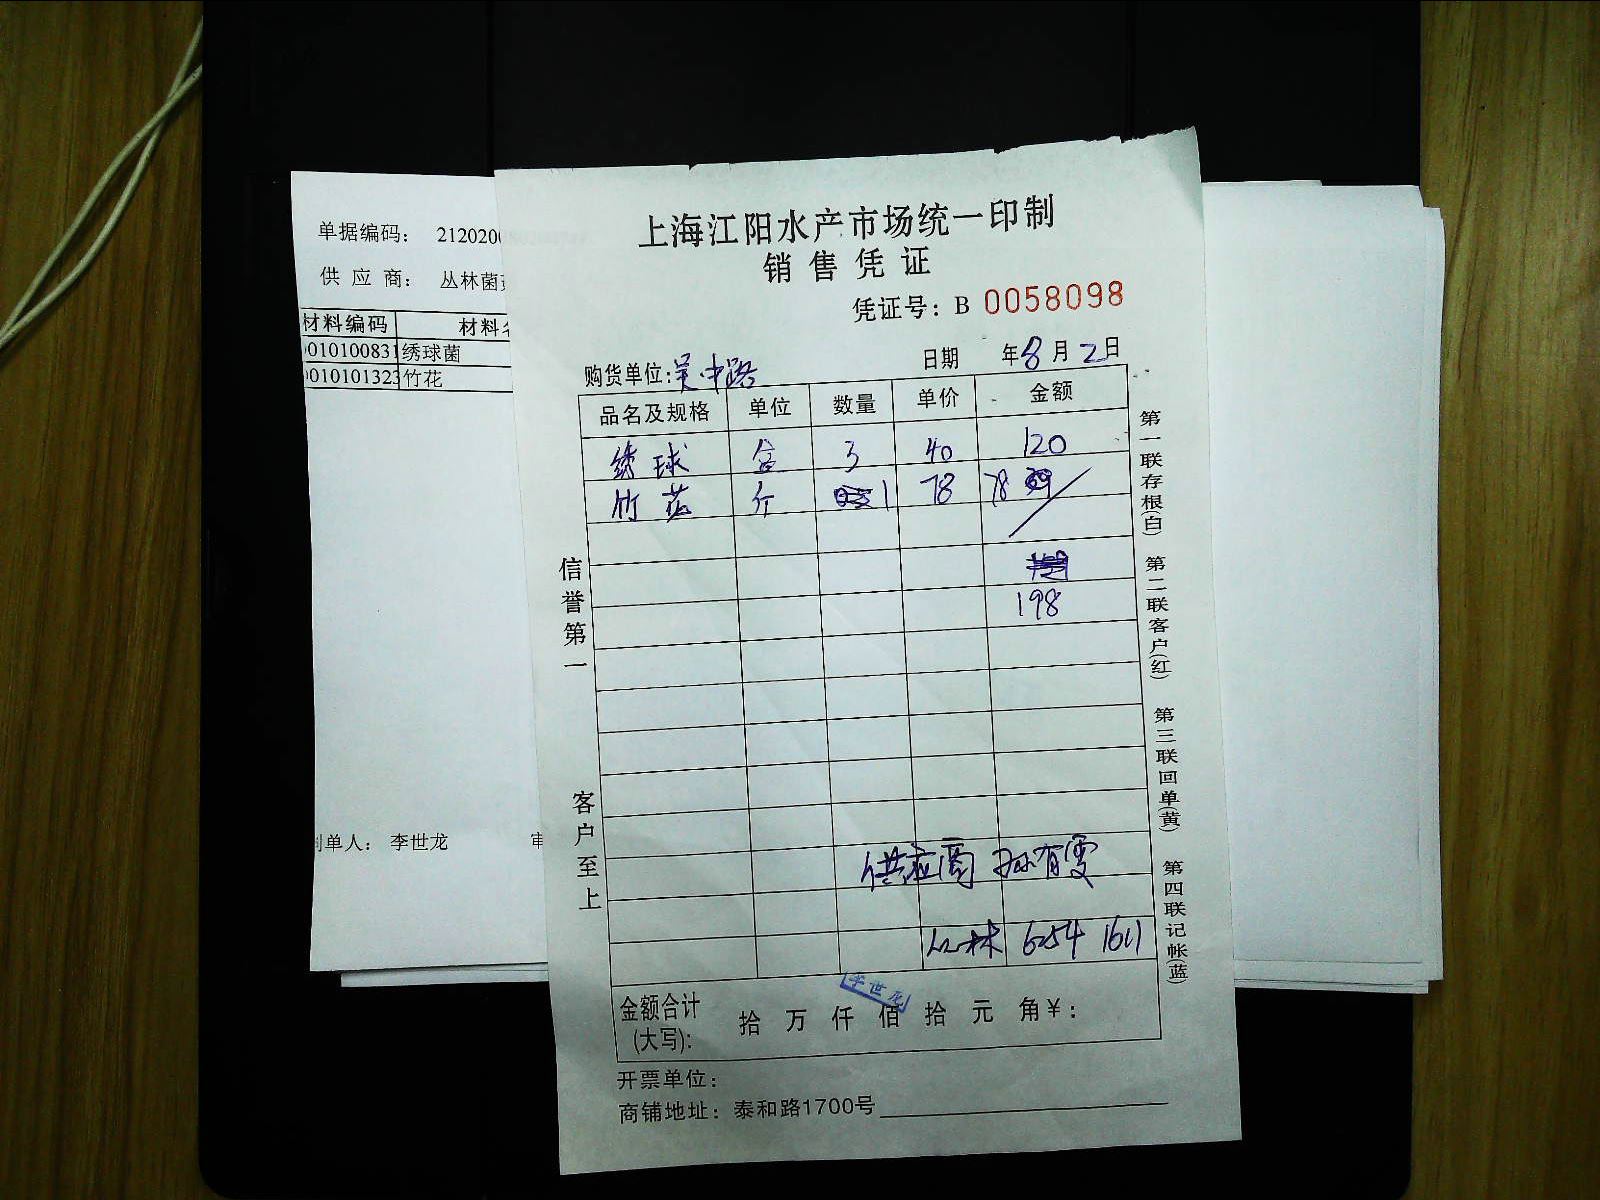 上海江阳水产市场统一印制
销售凭证
凭证号：B 0058098
购货单位:吴中路 日期 年8月2日
品名及规格 单位 数量 单价 金额
绣球 盒 3 40 120
竹花 斤 1 78 78
198
供应商 孙有雯
丛林 6254 1611
李世龙
金额合计(大写): 拾 万 仟 佰 拾 元 角￥:
开票单位:
商铺地址: 泰和路1700号
信誉第一 客户至上
第一联存根(白) 第二联客户(红) 第三联回单(黄) 第四联记帐(蓝)
单据编码： 212020
供应商： 丛林菌
材料编码 材料
010100831 绣球菌
010101323 竹花
制单人： 李世龙 审